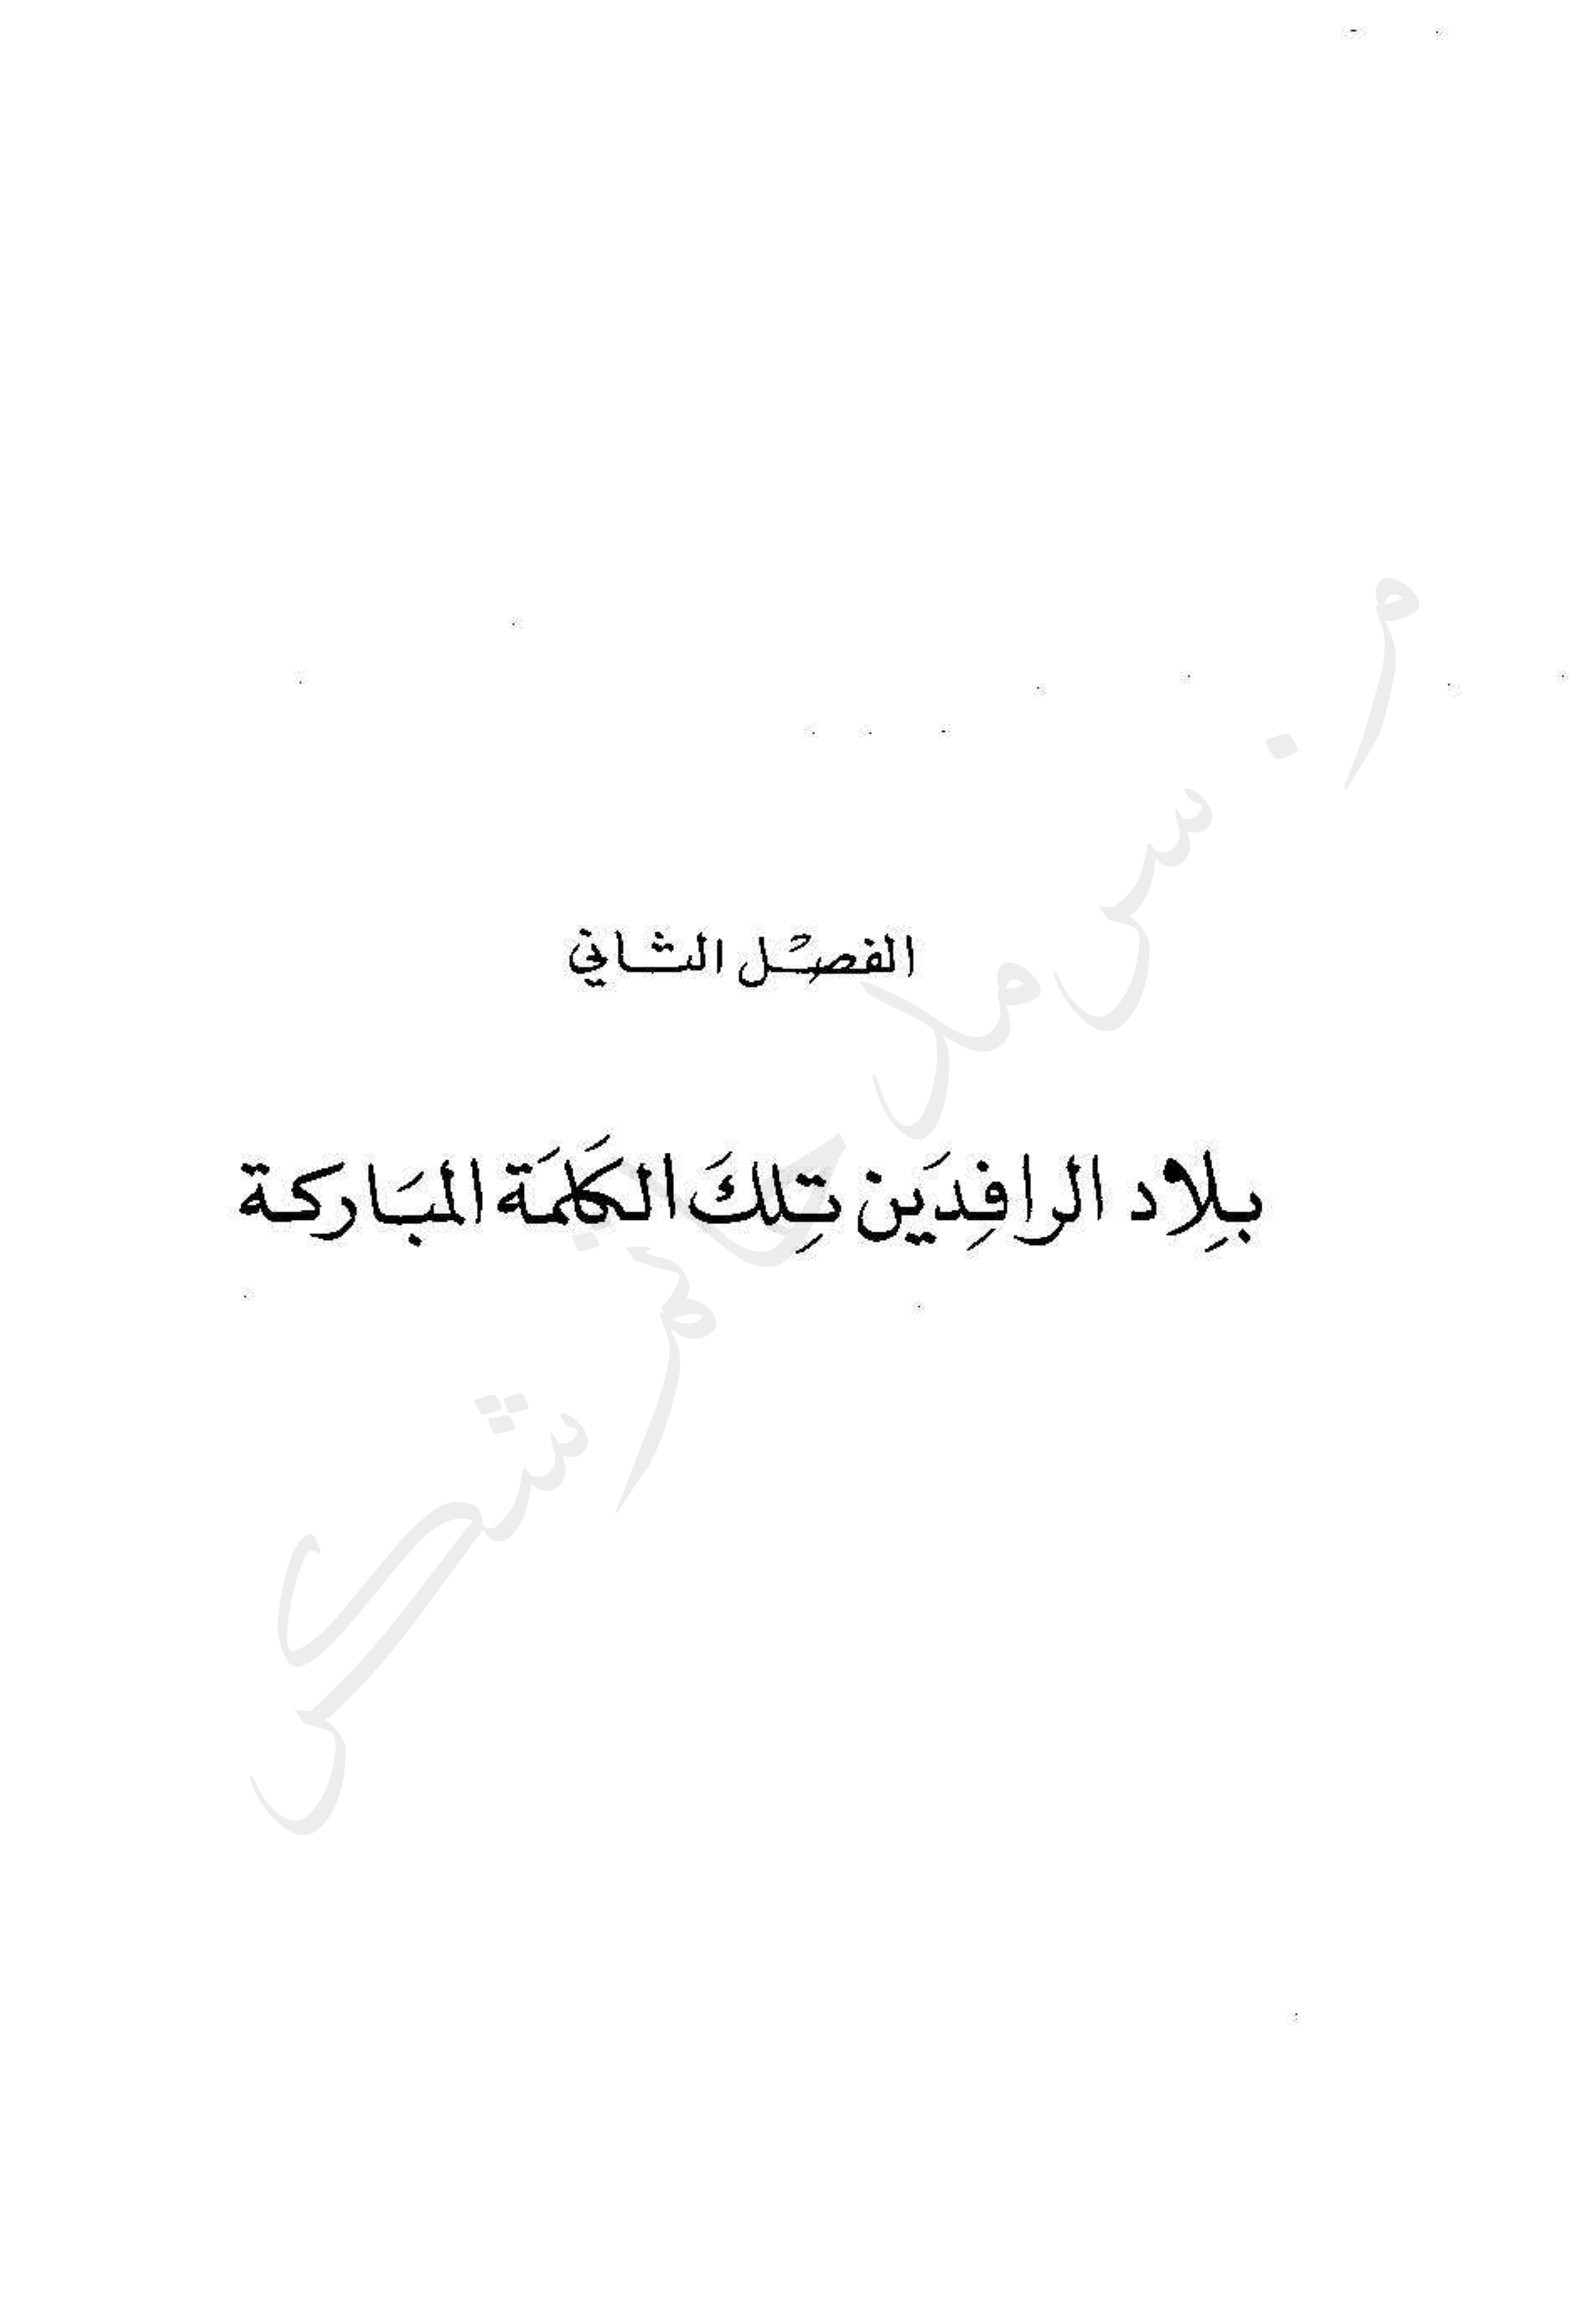 الفصَل الثاني
بِلاد الرافِدَين تِلكَ الكَلمَة المبَاركة